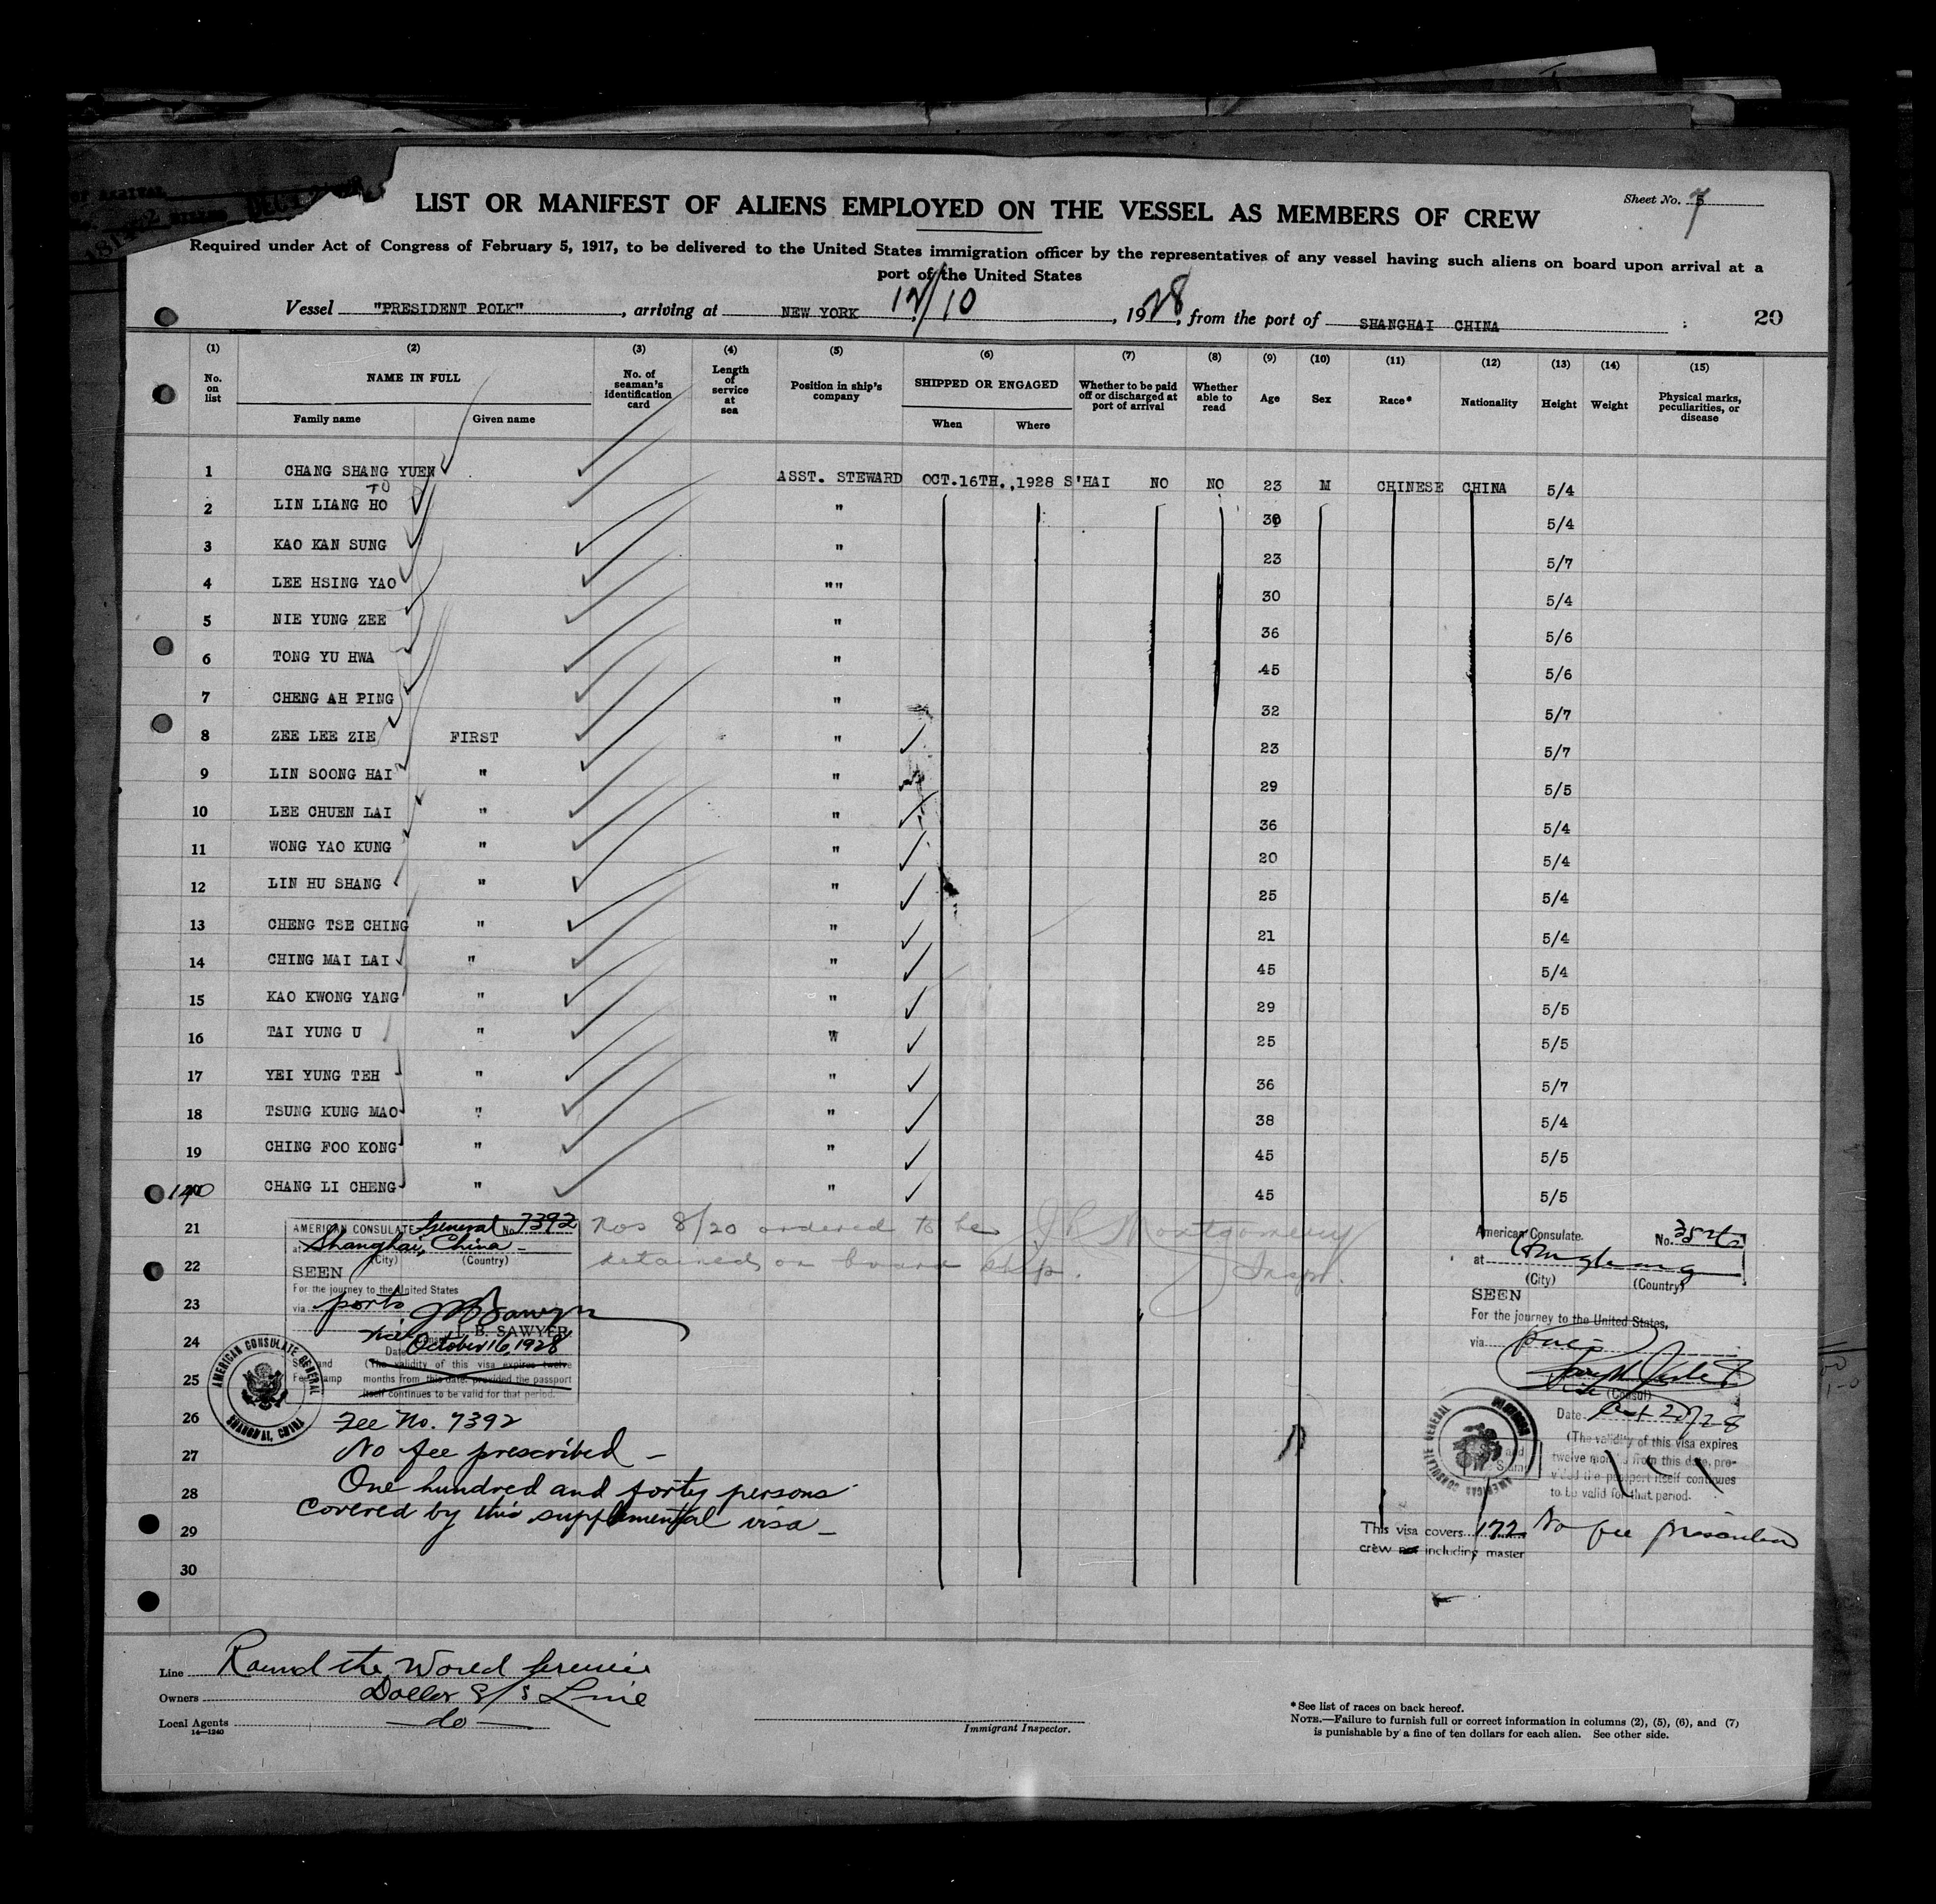 OF ARRIVAL
LIST OR MANIFEST OF ALIENS EMPLOYED ON THE VESSEL AS MEMBERS OF CREW
Sheet No. 7
Required under Act of Congress of February 5, 1917, to be delivered to the United States immigration officer by the representatives of any vessel having such aliens on board upon arrival at a
port of the United States
Vessel "PRESIDENT POLK", arriving at NEW YORK 12/10, 1928, from the port of SHANGHAI CHINA : 20
(1) (2) (3) (4) (5) (6) (7) (8) (9) (10) (11) (12) (13) (14) (15)
No. on list NAME IN FULL No. of seaman's identification card Length of service at sea Position in ship's company SHIPPED OR ENGAGED Whether to be paid off or discharged at port of arrival Whether able to read Age Sex Race* Nationality Height Weight Physical marks, peculiarities, or disease
Family name Given name When Where
1 CHANG SHANG YUEN ASST. STEWARD OCT.16TH.,1928 S'HAI NO NO 23 M CHINESE CHINA 5/4
TO
2 LIN LIANG HO " 5/4
3 KAO KAN SUNG " 23 5/7
4 LEE HSING YAO "" 30 5/4
5 NIE YUNG ZEE " 36 5/6
6 TONG YU HWA " 45 5/6
7 CHENG AH PING " 32 5/7
8 ZEE LEE ZIE FIRST " 23 5/7
9 LIN SOONG HAI " " 29 5/5
10 LEE CHUEN LAI " " 36 5/4
11 WONG YAO KUNG " " 20 5/4
12 LIN HU SHANG " " 25 5/4
13 CHENG TSE CHING " " 21 5/4
14 CHING MAI LAI " " 45 5/4
15 KAO KWONG YANG " " 29 5/5
16 TAI YUNG U " " 25 5/5
17 YEI YUNG TEH " " 36 5/7
18 TSUNG KUNG MAO " " 38 5/4
19 CHING FOO KONG " " 45 5/5
140 CHANG LI CHENG " " 45 5/5
21
22
23
24
25
26
27
28
29
30
AMERICAN CONSULATE General No 7392
at Shanghai, China
(City) (Country)
SEEN
For the journey to the United States
via ports
L. B. SAWYER
Date October 16, 1928
(The validity of this visa expires twelve
months from this date, provided the passport
itself continues to be valid for that period.
AMERICAN CONSULATE GENERAL
SHANGHAI, CHINA
Fee No. 7392
No fee prescribed —
One hundred and forty persons
covered by this supplemental visa —
Nos 8/20 ordered to be
detained on board ship.
J P Montgomery
Inspr.
American Consulate. No.
at
(City) (Country)
SEEN
For the journey to the United States,
via
(Consul)
Date
(The validity of this visa expires
twelve months from this date, pro-
vided the passport itself continues
to be valid for that period.
AMERICAN CONSULATE GENERAL
This visa covers 172 No fee prescribed
crew not including master
Line Round the World Service
Owners Dollar S/S Line
Local Agents do
14—1240
Immigrant Inspector.
*See list of races on back hereof.
NOTE.—Failure to furnish full or correct information in columns (2), (5), (6), and (7)
is punishable by a fine of ten dollars for each alien. See other side.